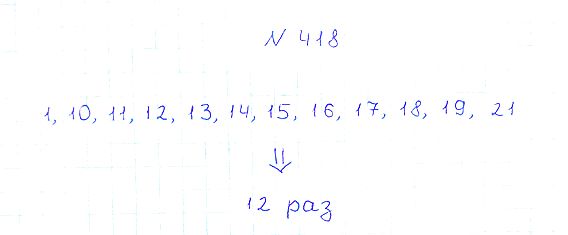 N 418
1, 10, 11, 12, 13, 14, 15, 16, 17, 18, 19, 21
⇓
12 раз